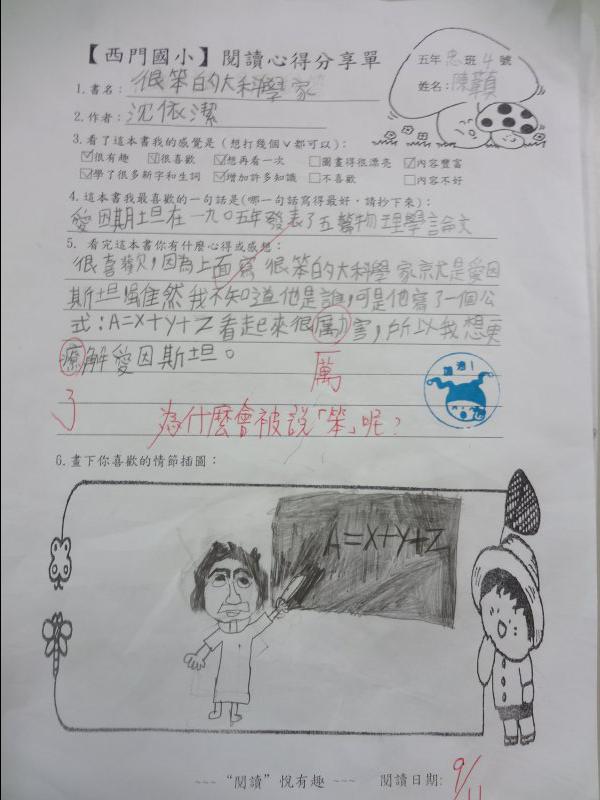 【西門國小】閱讀心得分享單
五年忠班4號
姓名:陳
1.書名:很笨的大科學家
2.作者:沈依潔
3.看了這本書我的感覺是(想打幾個∨都可以):
☑很有趣 ☑很喜歡 ☑想再看一次 □圖畫得很漂亮 ☑內容豐富
☑學了很多新字和生詞 ☑增加許多知識 □不喜歡 □內容不好
4.這本書我最喜歡的一句話是(哪一句話寫得最好,請抄下來):
愛因期坦在一九0五年發表了五篇物理學論文
5. 看完這本書你有什麼心得或感想:
很喜歡,因為上面寫 很笨的大科學家就是愛因
斯坦雖然我不知道他是誰,可是他寫了一個公
式:A=X+Y+Z看起來很厲害,所以我想要
療解愛因斯坦。
厲
了
為什麼會被說「笨」呢?
加油!
6.畫下你喜歡的情節插圖:
A=X+Y+Z
~~~ “閱讀”悅有趣 ~~~ 閱讀日期:9/11